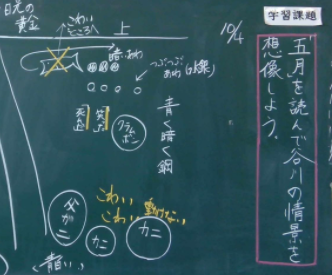 学習課題
"五月"を読んで谷川の情景を
想像しよう。
10/4
上
こわい
ところへ
日光の
黄金
暗い
あわ
つぶつぶ
あわ
青く暗く鋼
クラム
ボン
笑った
死んだ
こわい
こわい
動けない
父
がニ
カニ
カニ